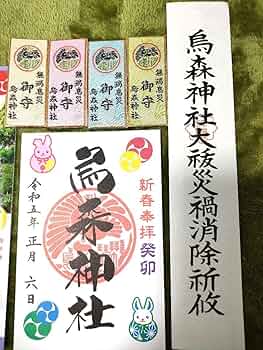 無病息災
御守
烏森神社
無病息災
御守
烏森神社
無病息災
御守
烏森神社
無病息災
御守
烏森神社
新春奉拝
癸卯
烏森神社
令和五年正月六日
烏森神社大祓災禍消除祈攸